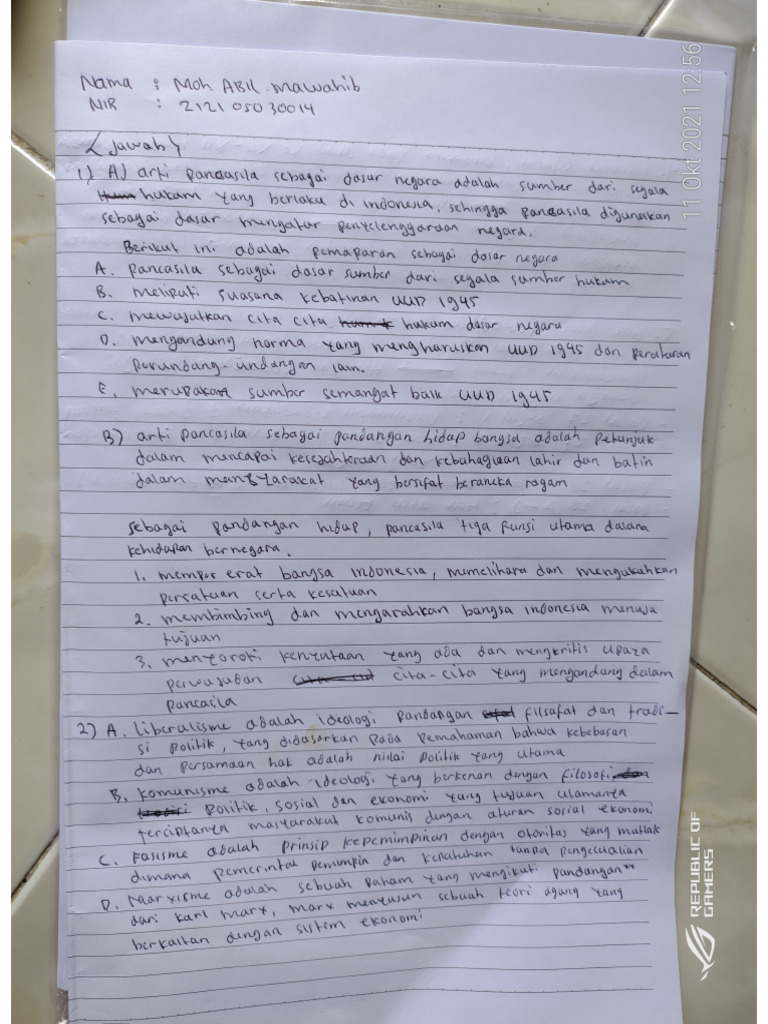 Nama : Moh ABIL mawahib
NIR : 212105030014
< Jawab >
1) A) arti pancasila sebagai dasar negara adalah sumber dari segala
hukum yang berlaku di indonesia, sehingga pancasila digunakan
sebagai dasar mengatur penyelenggaraan negara.
Berikut ini adalah pemaparan sebagai dasar negara
A. pancasila sebagai dasar sumber dari segala sumber hukum
B. meliputi suasana kebatinan UUD 1945
C. mewujutkan cita cita hukum dasar negara
D. mengandung norma yang mengharuskan UUD 1945 dan peraturan
perundang-undangan lain.
E. merupakan sumber semangat baik UUD 1945
B) arti pancasila sebagai pandangan hidup bangsa adalah petunjuk
dalam mencapai kesejahteraan dan kebahagiaan lahir dan batin
dalam masyarakat yang bersifat beraneka ragam
sebagai pandangan hidup, pancasila tiga funsi utama dalam
kehidupan bernegara.
1. memper erat bangsa indonesia, memelihara dan mengukuhkan
persatuan serta kesatuan
2. membimbing dan mengarahkan bangsa indonesia menuju
tujuan
3. menyoroti kenyataan yang ada dan mengkritis upaya
perwujudan cita-cita yang mengandung dalam
pancaila
2) A. liberalisme adalah ideologi pandangan filsafat dan tradi-
si politik, yang didasarkan pada pemahaman bahwa kebebasan
dan persamaan hak adalah nilai politik yang utama
B. komunisme adalah ideologi yang berkenan dengan filosofi
politik, sosial dan ekonomi yang tujuan utamanya
terciptanya masyarakat komunis dengan aturan sosial ekonomi
C. Fasisme adalah prinsip kepemimpinan dengan otoritas yang mutlak
dimana pemerintal pemimpin dan kepatuhan tanpa pengecualian
D. Marxisme adalah sebuah paham yang mengikuti pandangan"
dari karl marx, marx menyusun sebuah teori agung yang
berkaitan dengan sistem ekonomi
11 Okt 2021 12:56
REPUBLIC OF
GAMERS